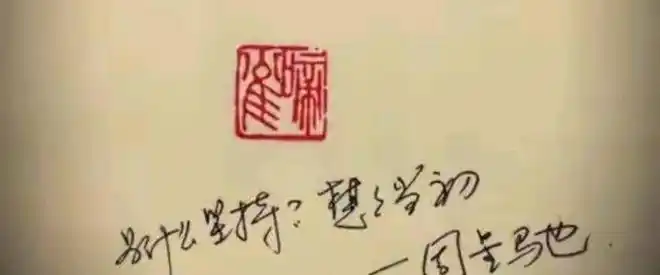 为什么坚持?想想当初
—周星驰.